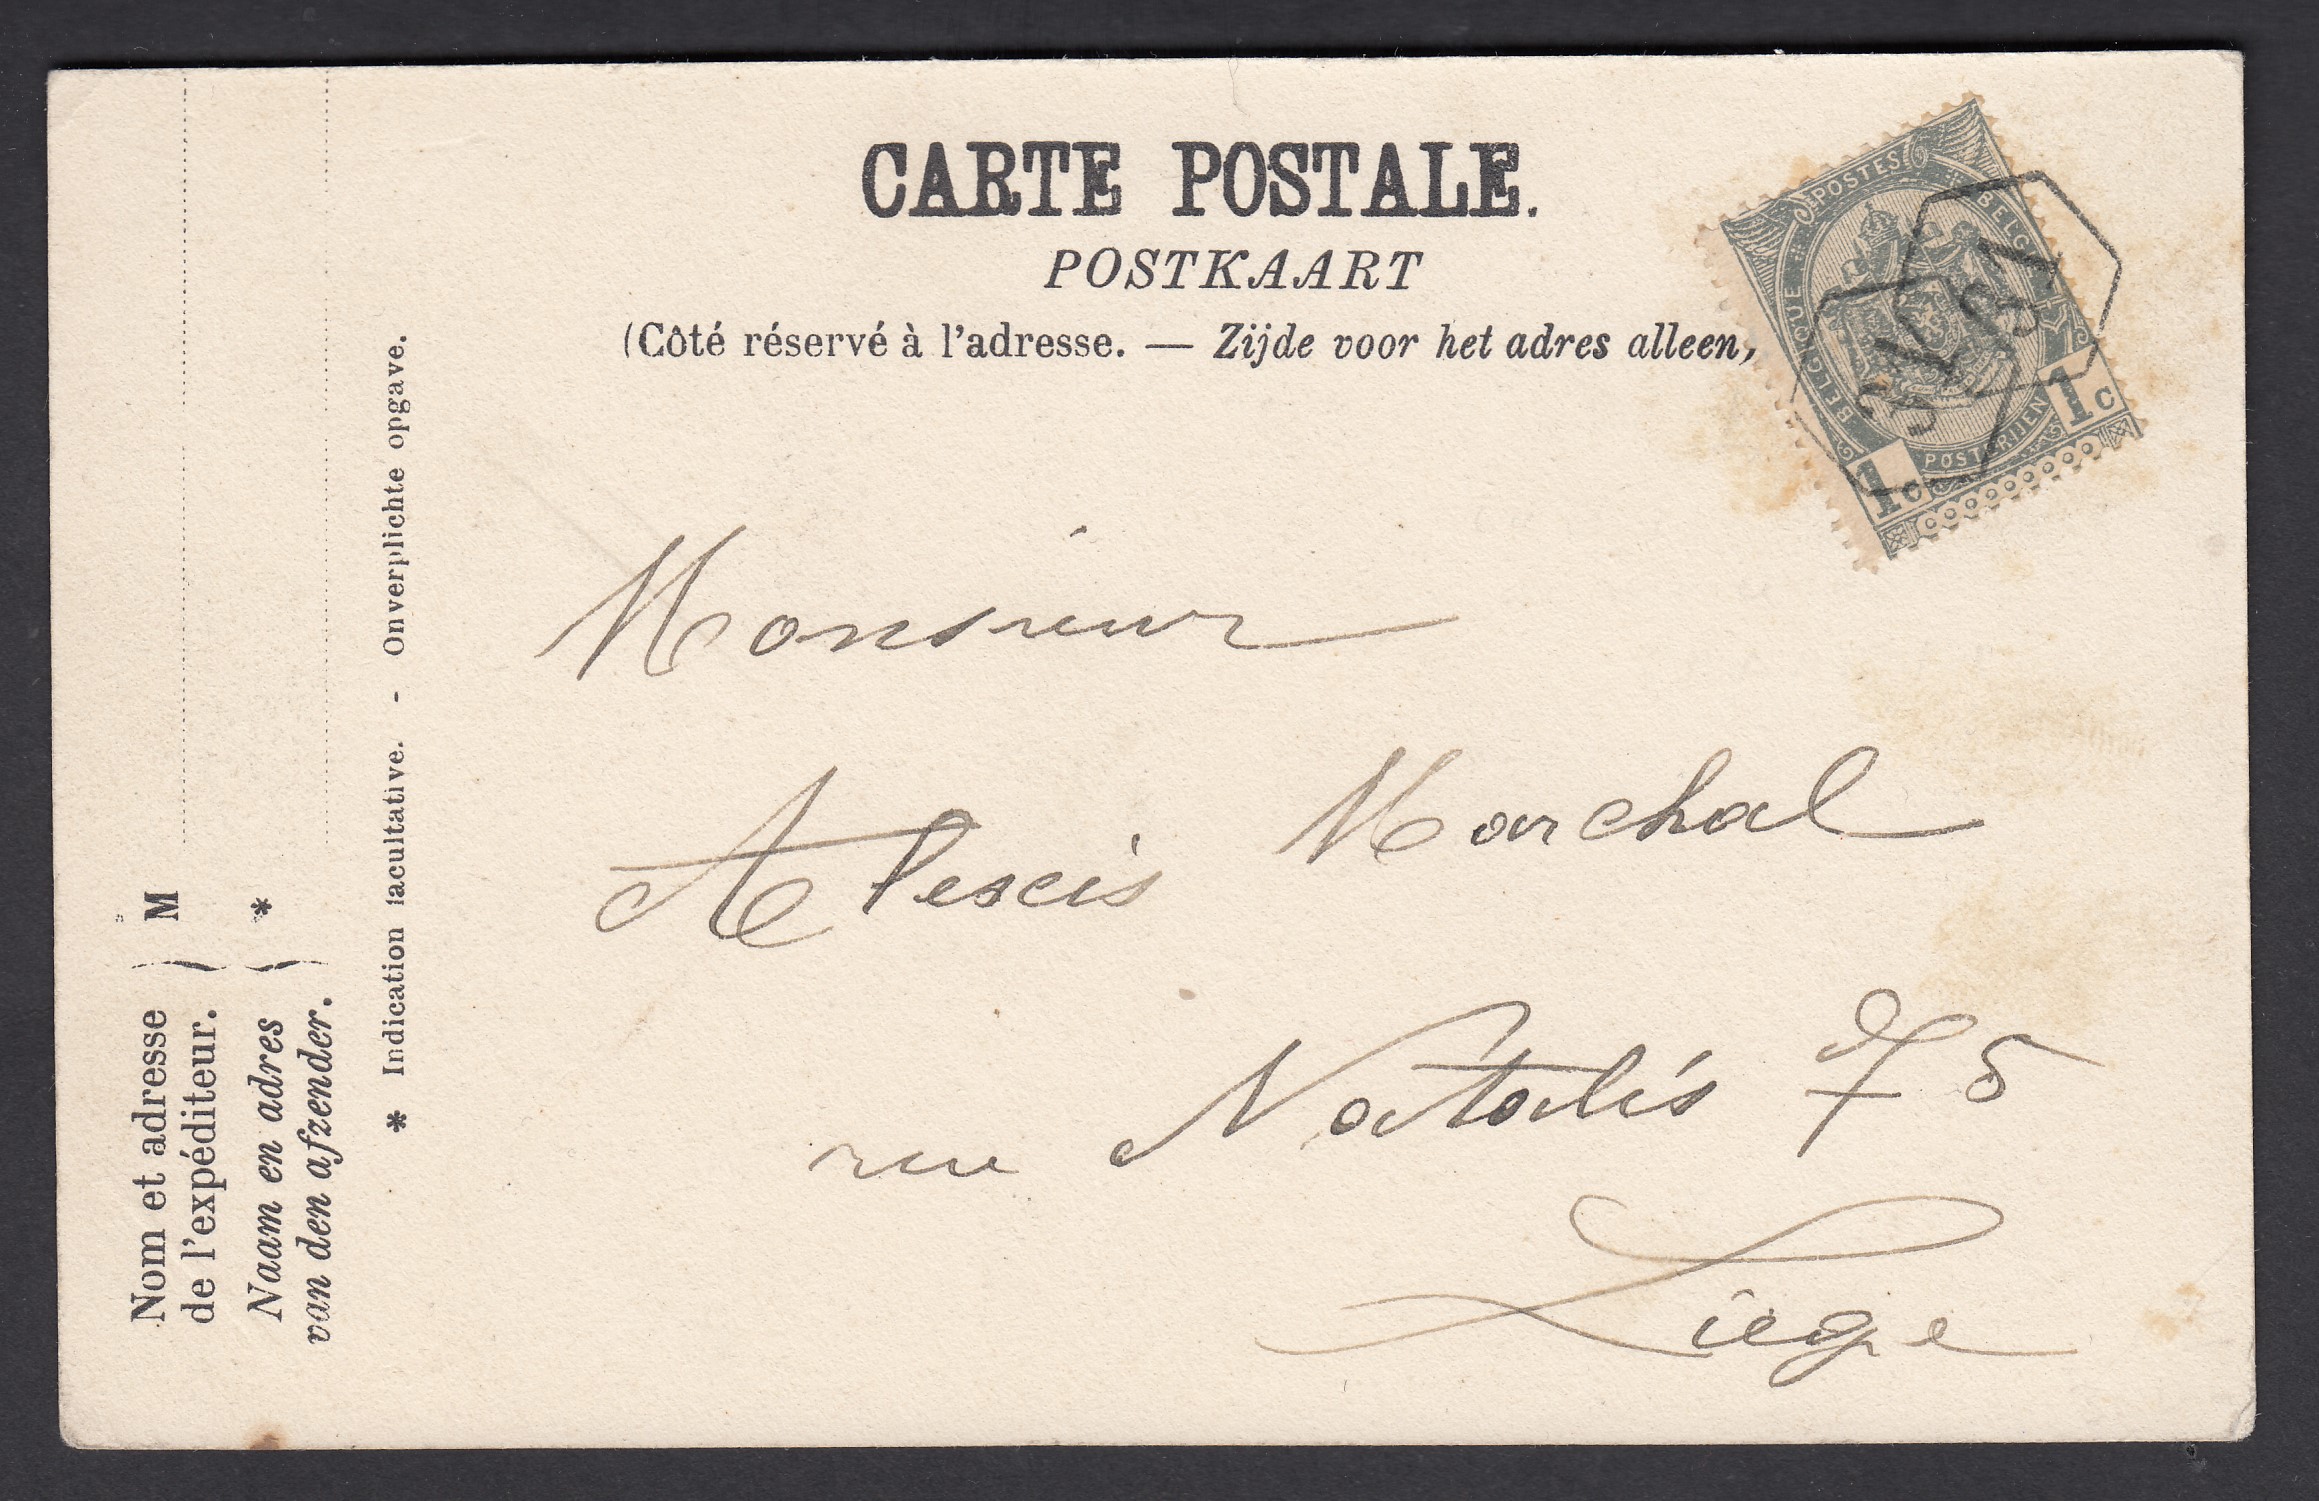 CARTE POSTALE.
POSTKAART
(Côté réservé à l'adresse. — Zijde voor het adres alleen,
POSTES
BELGIQUE
BELG
POSTERIJEN
1c
1c
Monsieur
Alexis Marchal
rue Natalis 75
Liége
Nom et adresse
de l'expéditeur. } M
Naam en adres
van den afzender. } *
* Indication facultative. - Onverplichte opgave.